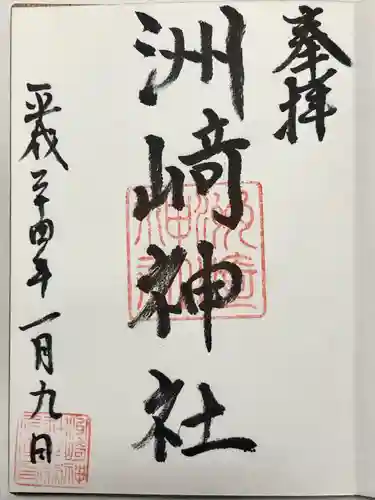 奉拝
洲﨑神社
平成二十四年一月九日